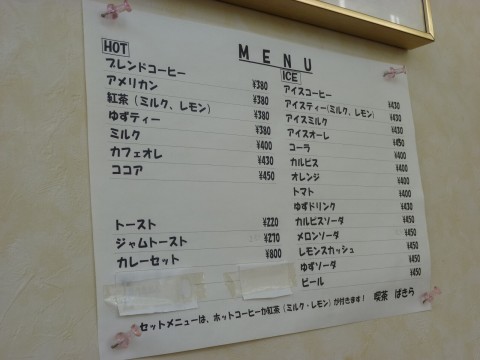 MENU
HOT
ブレンドコーヒー ¥380
アメリカン ¥380
紅茶(ミルク、レモン) ¥380
ゆずティー ¥380
ミルク ¥400
カフェオレ ¥430
ココア ¥450
トースト ¥220
ジャムトースト ¥270
カレーセット ¥800
ICE
アイスコーヒー ¥430
アイスティー(ミルク,レモン) ¥430
アイスミルク ¥430
アイスオーレ ¥450
コーラ ¥400
カルピス ¥400
オレンジ ¥400
トマト ¥400
ゆずドリンク ¥400
カルピスソーダ ¥450
メロンソーダ ¥450
レモンスカッシュ ¥450
ゆずソーダ ¥450
ビール ¥450
セットメニューは、ホットコーヒーか紅茶(ミルク・レモン)が付きます! 喫茶 ぱきら